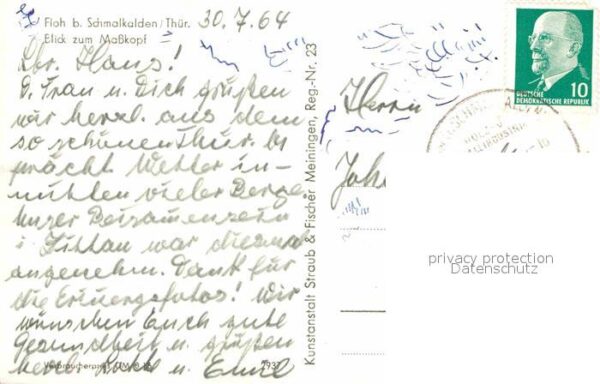 Floh b. Schmalkalden/Thür. 30.7.64
Blick zum Maßkopf
Lbr. Hans!
D. Frau u. Dich grüßen
wir herzl. aus dem
so schönen Thür. Bei
prächt. Wetter in-
mitten vieler Berge.
Unser Beisammensein
in Zittau war diesmal
angenehm. Dank für
die Erinergsfotos! Wir
wünschen Euch gute
Gesundheit u. grüßen
herzl. u. Emil
Verbraucherpreis
Kunstanstalt Straub & Fischer Meiningen, Reg.-Nr. 23
Herrn
Joh
DEUTSCHE
DEMOKRATISCHE REPUBLIK 10
privacy protection
Datenschutz